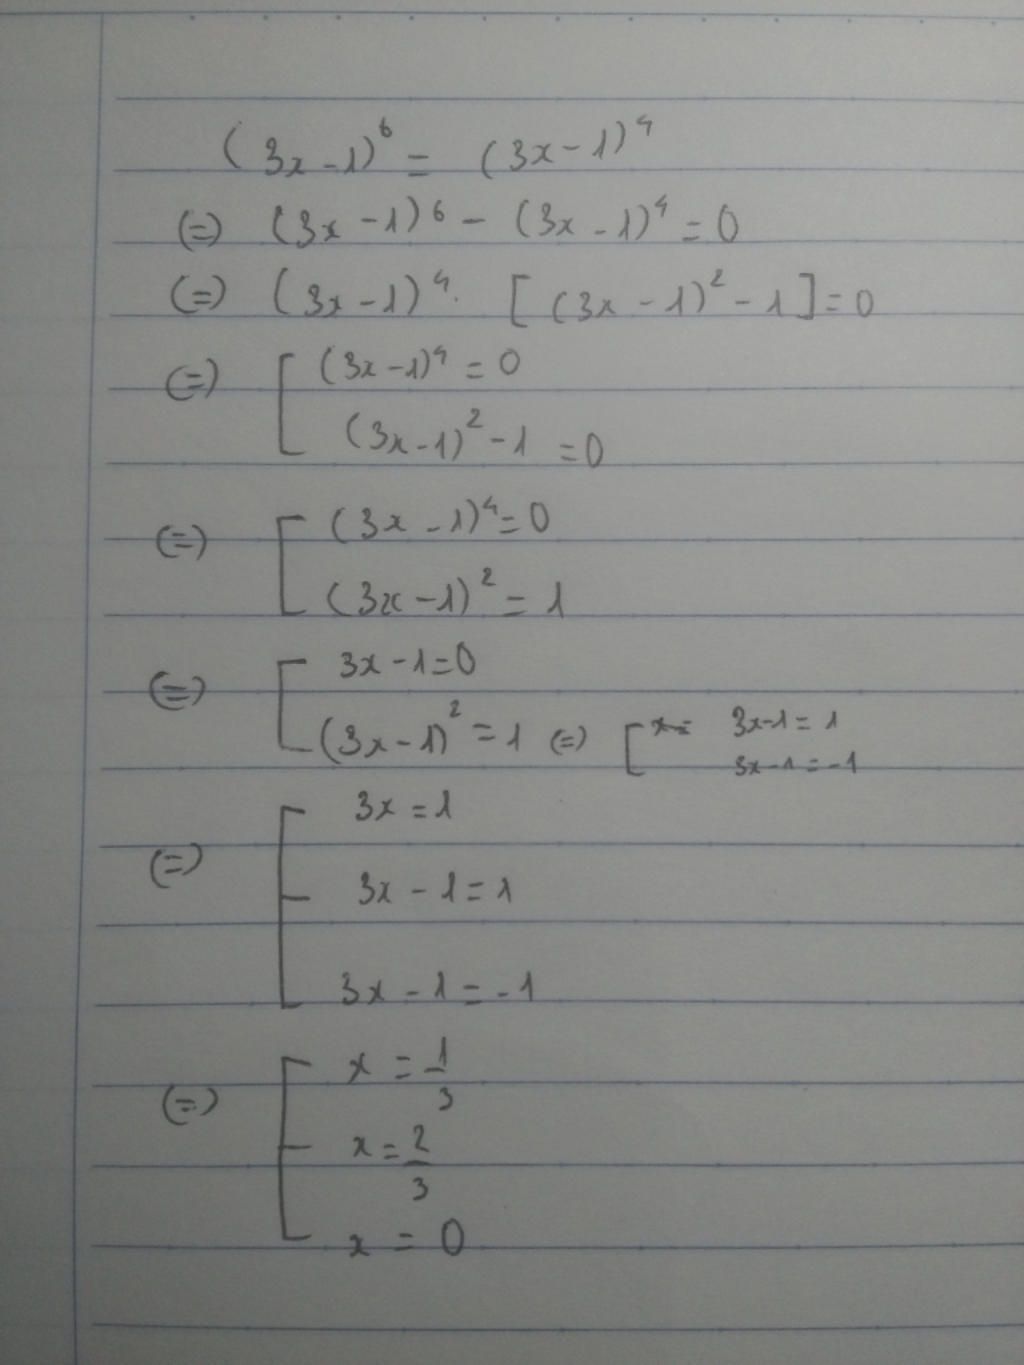 (3x-1)⁶ = (3x-1)⁴
(=) (3x-1)⁶ - (3x-1)⁴ = 0
(=) (3x-1)⁴. [(3x-1)² - 1] = 0
(=) [ (3x-1)⁴ = 0
(3x-1)² - 1 = 0
(=) [ (3x-1)⁴ = 0
(3x-1)² = 1
(=) [ 3x-1=0
(3x-1)² = 1 (=) [ x= 3x-1 = 1
3x-1 = -1
3x = 1
(=) [ 3x - 1 = 1
3x - 1 = -1
x = 1/3
(=) [ x = 2/3
x = 0